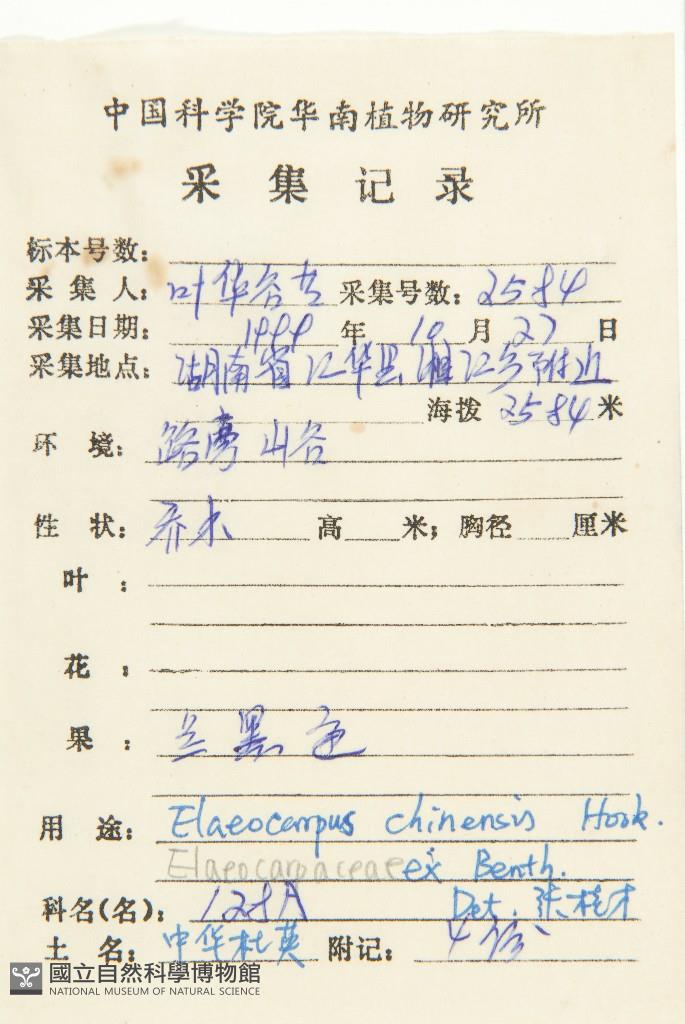 中国科学院华南植物研究所
采集记录
标本号数:
采集人: 叶华谷等 采集号数: 2584
采集日期: 1999 年 10 月 27 日
采集地点: 湖南省江华县湘江乡附近
海拨 2584 米
环境: 路旁 山谷
性状: 乔木 高 米; 胸径 厘米
叶:
花:
果: 兰黑色
用途: Elaeocarpus chinensis Hook.
Elaeocarpaceae ex Benth.
科名(名): 128A Det. 张桂才
土名: 中华杜英 附记: 4份
國立自然科學博物館
NATIONAL MUSEUM OF NATURAL SCIENCE